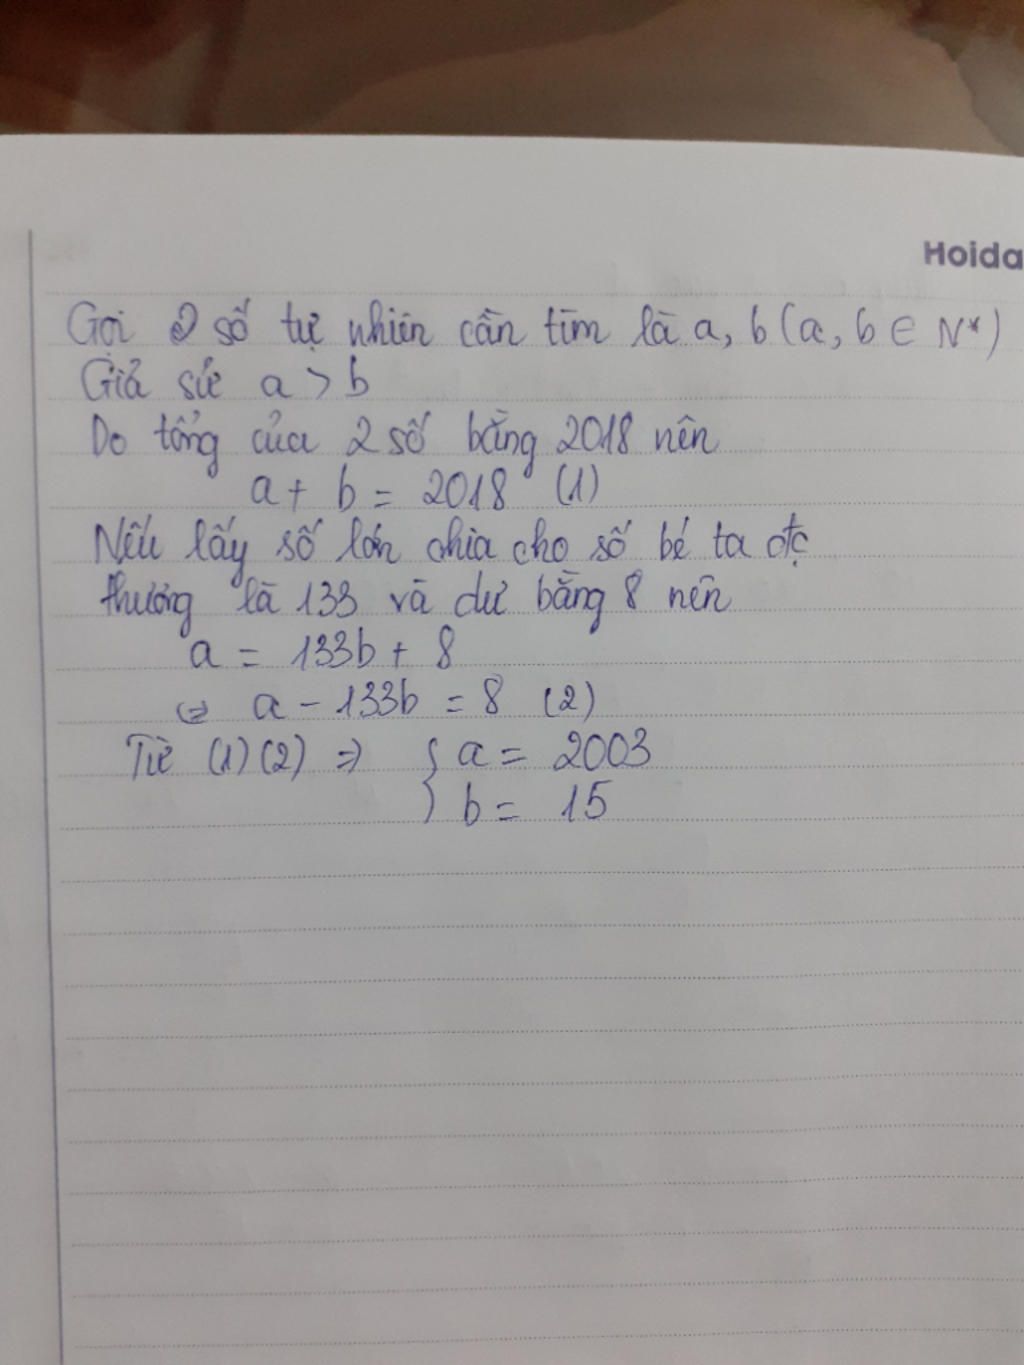 Hoida
Gọi 2 số tự nhiên cần tìm là a, b (a, b ∈ N*)
Giả sử a > b
Do tổng của 2 số bằng 2018 nên
a + b = 2018 (1)
Nếu lấy số lớn chia cho số bé ta đc
thương là 133 và dư bằng 8 nên
a = 133b + 8
⇔ a - 133b = 8 (2)
Từ (1)(2) ⇒ { a = 2003
b = 15